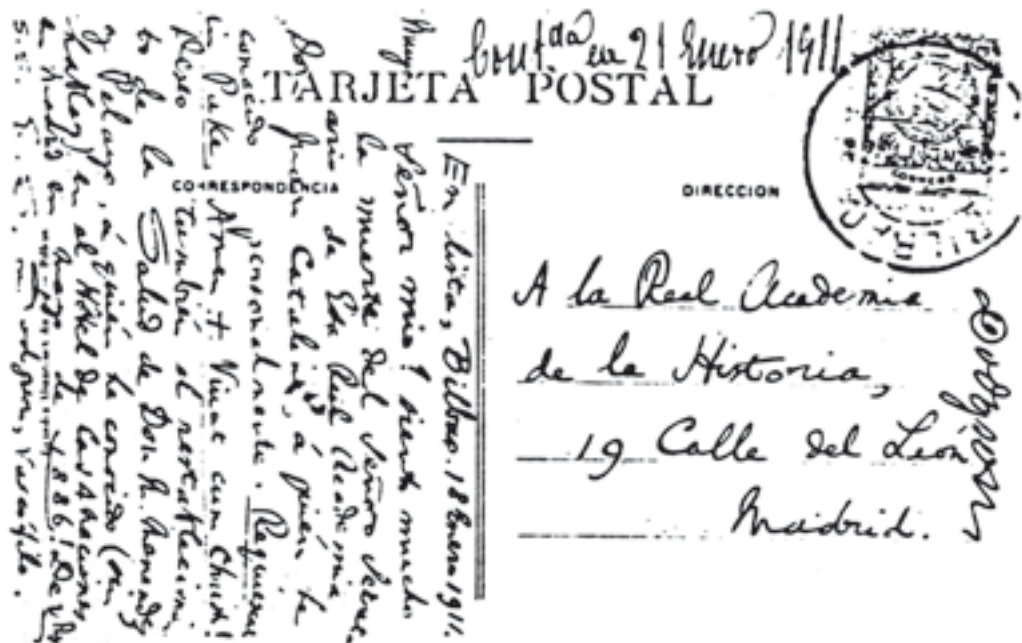 Cont.da en 21 Enero 1911
TARJETA POSTAL
CORRESPONDENCIA
DIRECCION
CORREOS
A la Real Academia
de la Historia,
19 Calle del León
Madrid.
En lista, Bilbao. 18 Enero 1911.
Muy Señor mio! siento mucho
la muerte del Señor
de Esa Real Academia
Don Juan Catalina, á quién he
conocido personalmente. Requiescat
in Pake Amen + Vivat cum Christ!
Deseo también el restablecimi
to de la Salud de Don R. Menendez
y Pelayo, á quién he conocido (en
en el Hôtel de Las Naciones
en Madrid en de 1886!